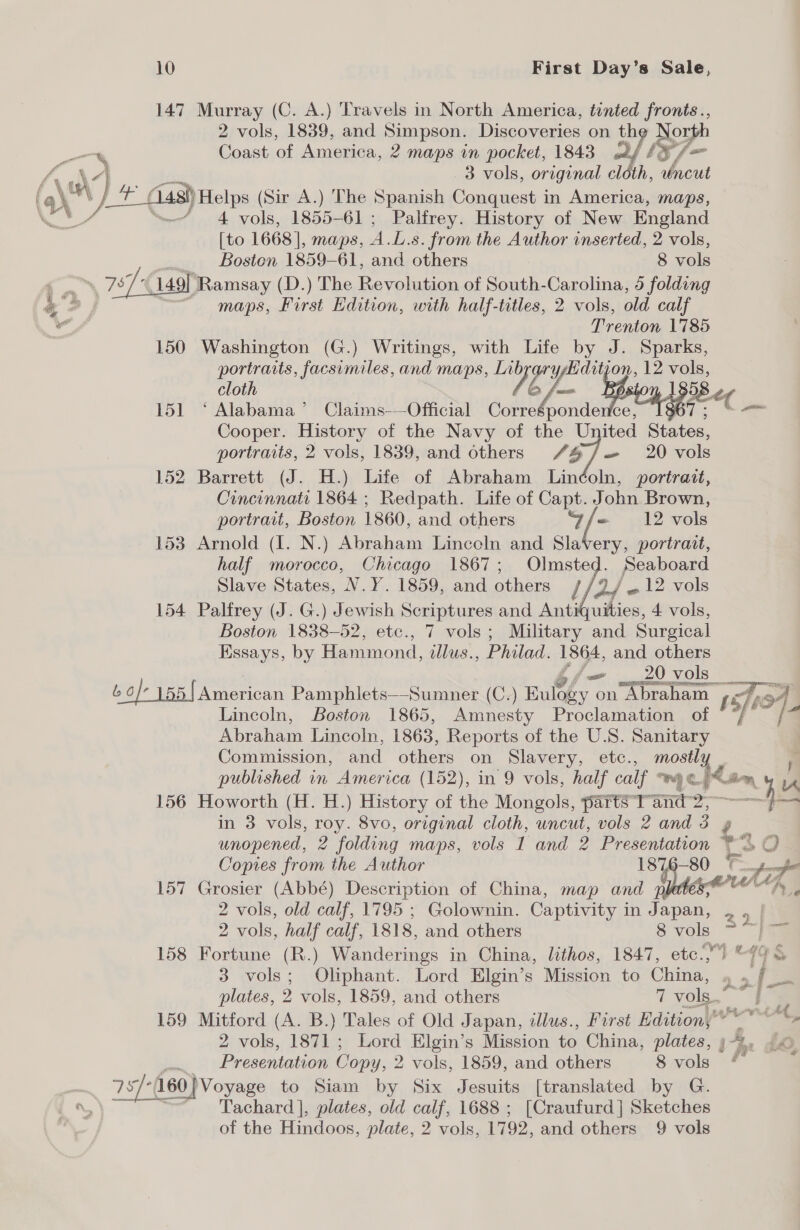 10 First Day's Sale,
147 Murray (C. A.) Travels in North America, tinted fronts.,
2 vols, 1839, and Simpson. Discoveries on the North
Coast of America, 2 maps in pocket, 1843
3 vols, original cloth, uncut
148 Helps (Sir A.) The Spanish Conquest in America, maps,
4 vols, 1855-61; Palfrey. History of New England
[to 1668], maps, A.L.s. from the Author inserted, 2 vols,
Boston 1859-61, and others 8 vols
75/- 149 Ramsay (D.) The Revolution of South-Carolina, 5 folding
maps, First Edition, with half-titles, 2 vols, old calf
Trenton 1785
150 Washington (G.) Writings, with Life by J. Sparks,
portraits, facsimiles, and maps, Library Edition, 12 vols,
cloth Boston 1858
151 'Alabama' Claims—Official Correspondence, 1867;
Cooper. History of the Navy of the United States,
portraits, 2 vols, 1839, and others 20 vols
152 Barrett (J. H.) Life of Abraham Lincoln, portrait,
Cincinnati 1864; Redpath. Life of Capt. John Brown,
portrait, Boston 1860, and others 7/- 12 vols
153 Arnold (I. N.) Abraham Lincoln and Slavery, portrait,
half morocco, Chicago 1867; Olmsted. Seaboard
Slave States, N.Y. 1859, and others 12 vols
154 Palfrey (J. G.) Jewish Scriptures and Antiquities, 4 vols,
Boston 1838-52, etc., 7 vols; Military and Surgical
Essays, by Hammond, illus., Philad. 1864, and others
20 vols
60/- 155 American Pamphlets—Sumner (C.) Eulogy on Abraham
Lincoln, Boston 1865, Amnesty Proclamation of
Abraham Lincoln, 1863, Reports of the U.S. Sanitary
Commission, and others on Slavery, etc., mostly
published in America (152), in 9 vols, half calf
156 Howorth (H. H.) History of the Mongols, parts 1 and 2,
in 3 vols, roy. 8vo, original cloth, uncut, vols 2 and 3
unopened, 2 folding maps, vols 1 and 2 Presentation
Copies from the Author 1876-80
157 Grosier (Abbé) Description of China, map and plates,
2 vols, old calf, 1795; Golownin. Captivity in Japan,
2 vols, half calf, 1818, and others 8 vols
158 Fortune (R.) Wanderings in China, lithos, 1847, etc.,
3 vols; Oliphant. Lord Elgin's Mission to China,
plates, 2 vols, 1859, and others 7 vols
159 Mitford (A. B.) Tales of Old Japan, illus., First Edition,
2 vols, 1871; Lord Elgin's Mission to China, plates,
Presentation Copy, 2 vols, 1859, and others 8 vols
75/- 160 Voyage to Siam by Six Jesuits [translated by G.
Tachard], plates, old calf, 1688; [Craufurd] Sketches
of the Hindoos, plate, 2 vols, 1792, and others 9 vols